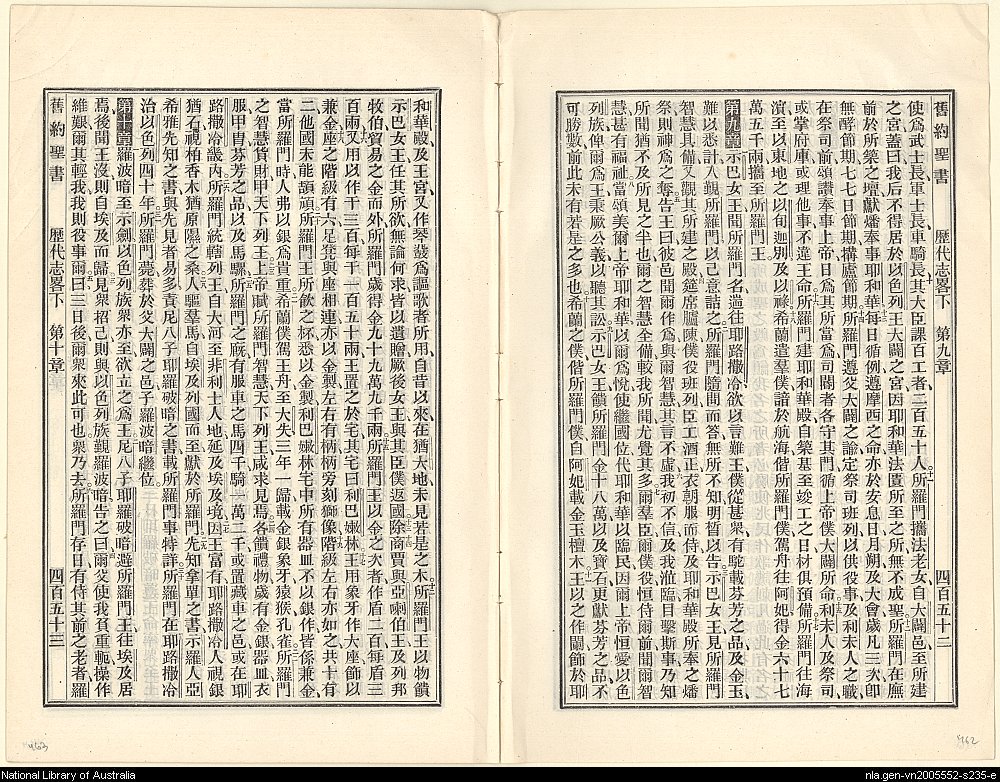 舊約聖書 歷代志畧下 第九章 四百五十二
使爲武士長軍士長車騎長其大臣課百工者二百五十人所羅門攜法老女自大闢邑至所建
之宮蓋曰我后不得居於以色列王大闢之宮因耶和華法匱所至之所無不成聖所羅門在廡
前於所築之壇獻燔奉事耶和華每日循例遵摩西之命亦於安息日月朔及大會歲凡三次卽
無酵節期七七日節期搆廬節期所羅門遵父大闢之諭定祭司班列以供役事及利未人之職
在祭司前頌讚奉事上帝日爲其所當爲司閽者各守其門循上帝僕大闢所命利未人及祭司
或掌府庫或理他事不違王命所羅門建耶和華殿自築基至竣工之日材俱預備所羅門往海
濱至以東地之以旬迦別及以祿希蘭遣羣僕諳於航海偕所羅門僕駕舟往阿妃得金六十七
萬五千兩攜至所羅門王
第九章示巴女王聞所羅門名遄往耶路撒冷欲以言難王僕從甚衆有駝載芬芳之品及金玉
難以悉計入覲所羅門以己意詰之所羅門隨問而答無所不知明晳以告示巴女王見所羅門
智慧具備又觀其所建之殿筵席臚陳僕役班列臣工酒正衣朝服而侍及耶和華殿所奉之燔
祭則神爲之奪告王曰彼邑聞爾作爲與爾智慧人言其言不虛我初不信及我涖臨目擊斯事乃知
所聞猶不及所見之半也爾之智慧全備較我所聞尤覺其多爾羣臣爾僕役恒侍爾前聞爾智
慧甚有福祉當頌美爾上帝耶和華以爾爲悅使繼國位代耶和華以臨民因爾上帝恒愛以色
列族俾爾爲王秉厥公義以聽其訟示巴女王饋所羅門金十八萬以及寶石更獻芬芳之品不
可勝數前此未有若是之多也希蘭之僕偕所羅門僕自阿妃載金玉檀木王以之作闌飾於耶
和華殿及王宮又作琴鼓爲謳歌者所用自昔以來在猶大地未見若是之木所羅門王以物饋
示巴女王任其所欲無論何求皆以遺贈厥後女王與其臣僕返國除商賈與亞喇伯王及列邦
牧伯貿易之金而外所羅門歲得金九十九萬九千兩所羅門王以金之大者作盾二百每盾三
百兩又用以作干三百每干一百五十兩王置之於宅其宅曰利巴嫩林王用象牙作大座飾以
兼金座之階級有六足凳與座相連亦以金製左右有柄柄旁刻獅像階級左右亦如之共十有
二他國未能頡頏所羅門王所飲之杯悉以金製利巴嫩林宅中所有器皿不以銀作皆係兼金
當所羅門時人弗以銀爲貴重希蘭僕駕王舟至大失三年一歸載金銀象牙猿猴孔雀所羅門
之智慧貨財甲天下列王上帝賦所羅門智慧天下列王咸求見焉各饋禮物歲有金銀器皿衣
服甲冑芬芳之品以及馬騾所羅門之厩有服車之馬四千騎一萬二千或置藏車之邑或在耶
路撒冷畿內所羅門統轄列王自大河至非利士人地延及埃及境因王富有耶路撒冷人視銀
猶石視柏香木猶原隰之桑人驅羣馬自埃及列國而至獻於所羅門先知拿單之書示羅人亞
希雅先知之書與先見者易多責尼八子耶羅破暗之書載所羅門事特詳所羅門在耶路撒冷
治以色列四十年所羅門薨葬於父大闢之邑子羅波暗繼位
第十章羅波暗至示劍以色列族衆亦至欲立之爲王尼八子耶羅破暗避所羅門王往埃及居
焉後聞王沒則自埃及而歸見衆招己則與以色列族覲羅波暗告之曰爾父使我負重軛操作
維艱爾其輕我我則役事爾曰三日後爾衆來此可也衆乃去所羅門存日有侍其前之老者羅
舊約聖書 歷代志畧下 第十章 四百五十三
462
463
National Library of Australia
nla.gen-vn2005552-s235-e